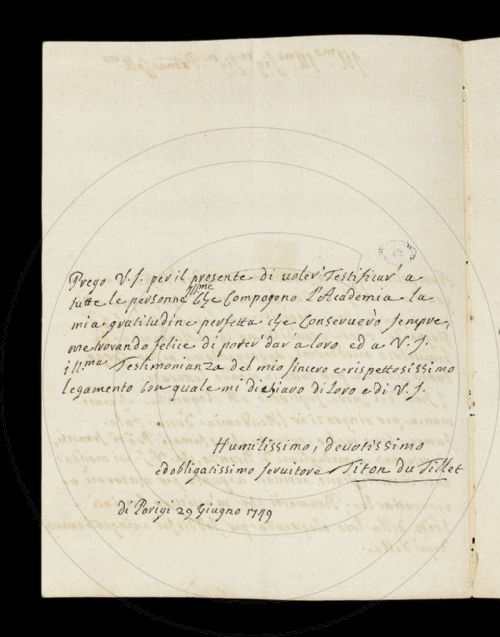 Prego V.S. per il presente di voler' Testificar' a
tutte le personne Illme che Compogono l'Academia la
mia gratitudine perfetta che Conserverò sempre,
me trovando felice di poter' dar' a loro ed a V.S.
ill.ma Testimonianza del mio sincero e rispettosissimo
legamento con quale mi dichiaro di loro e di V.S.
Humilissimo, devotissimo
ed obligatissimo servitore Titon du Tillet
di Parigi 29 Giugno 1749